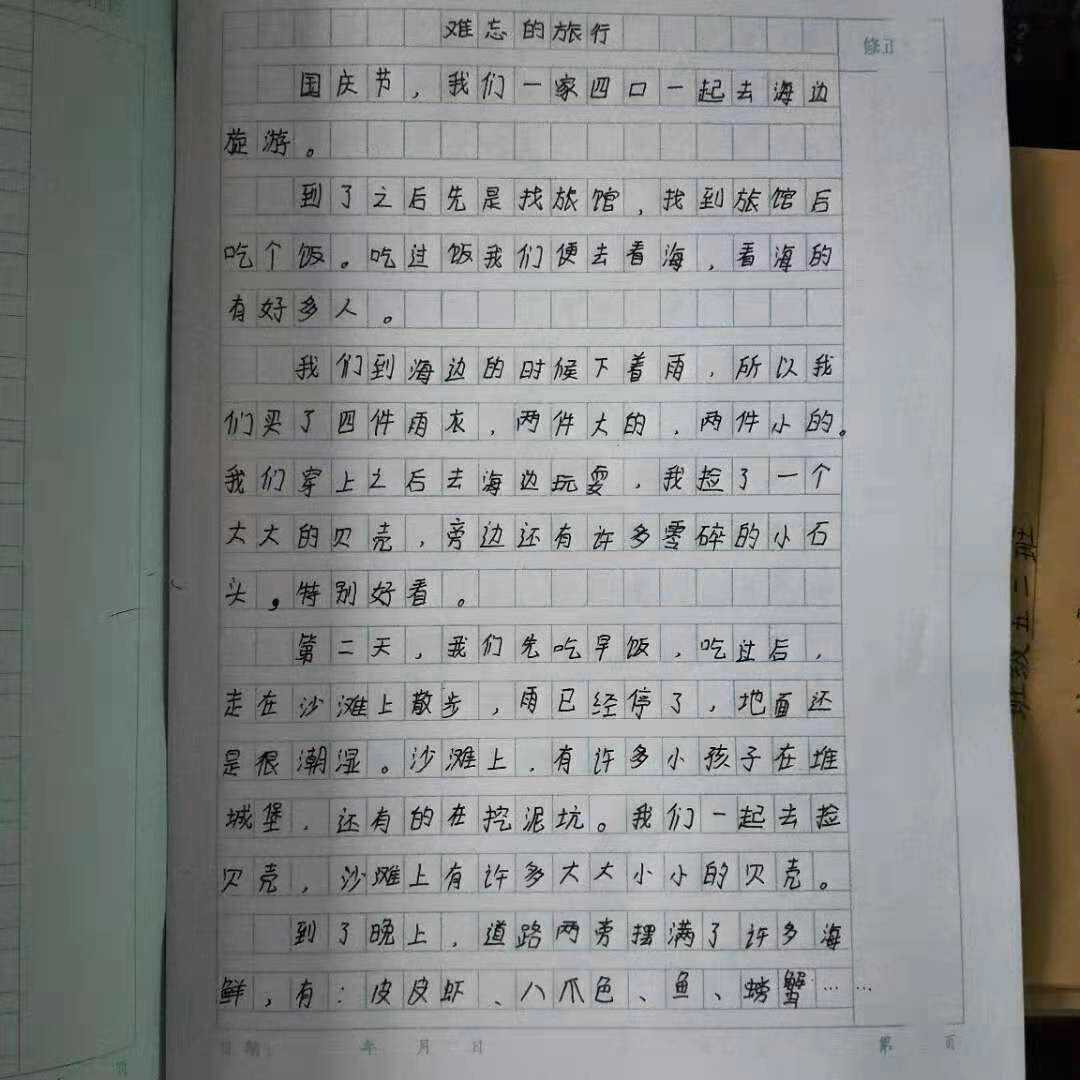 难忘的旅行
修订
国庆节，我们一家四口一起去海边
旋游。
到了之后先是找旅馆，找到旅馆后
吃个饭。吃过饭我们便去看海，看海的
有好多人。
我们到海边的时候下着雨，所以我
们买了四件雨衣，两件大的，两件小的。
我们穿上之后去海边玩耍，我捡了一个
大大的贝壳，旁边还有许多零碎的小石
头，特别好看。
第二天，我们先吃早饭，吃过后，
走在沙滩上散步，雨已经停了，地面还
是很潮湿。沙滩上，有许多小孩子在堆
城堡，还有的在挖泥坑。我们一起去捡
贝壳，沙滩上有许多大大小小的贝壳。
到了晚上，道路两旁摆满了许多海
鲜，有：皮皮虾、八爪色、鱼、螃蟹……
日期： 年 月 日 第 页
页
班级五二班